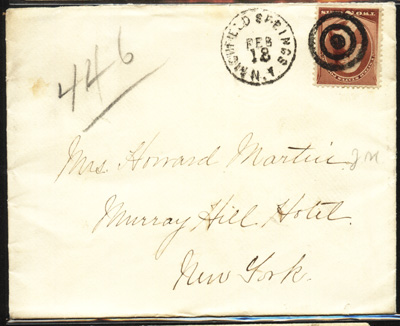 RICHFIELD SPRINGS, N.Y.
FEB
18
446
Mrs. Howard Martin
Murray Hill Hotel.
New York.